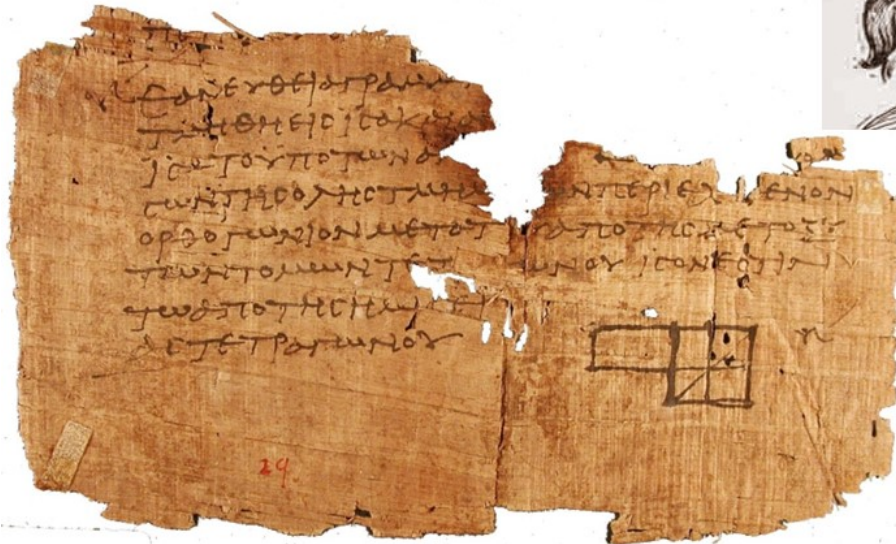 ΕΑΝΕΥΘΕΙΑΓΡΑΜΜ
ΤΜΗΘΗΕΙϹΙϹΑΚΑΙΑ
ΙϹΑΤΟΥΠΟΤΩΝΑ
ϹΩΝΤΗϹΟΛΗϹΤΜΗΜ ΩΝΠΕΡΙΕΧ ΜΕΝΟΝ
ΟΡΘΟΓΩΝΙΟΝΜΕΤΟΤ ΑΠΟΤΗϹΜΕΤΟΞΥ
ΤΩΝΤΟΜΩΝΤΕΤ ΩΝΟΥΙϹΟΝΕϹΤΙΝ
ΤΩΑΠΟΤΗϹΗΜΙϹΕΙ
ΑϹΤΕΤΡΑΓΩΝΟΥ
29.